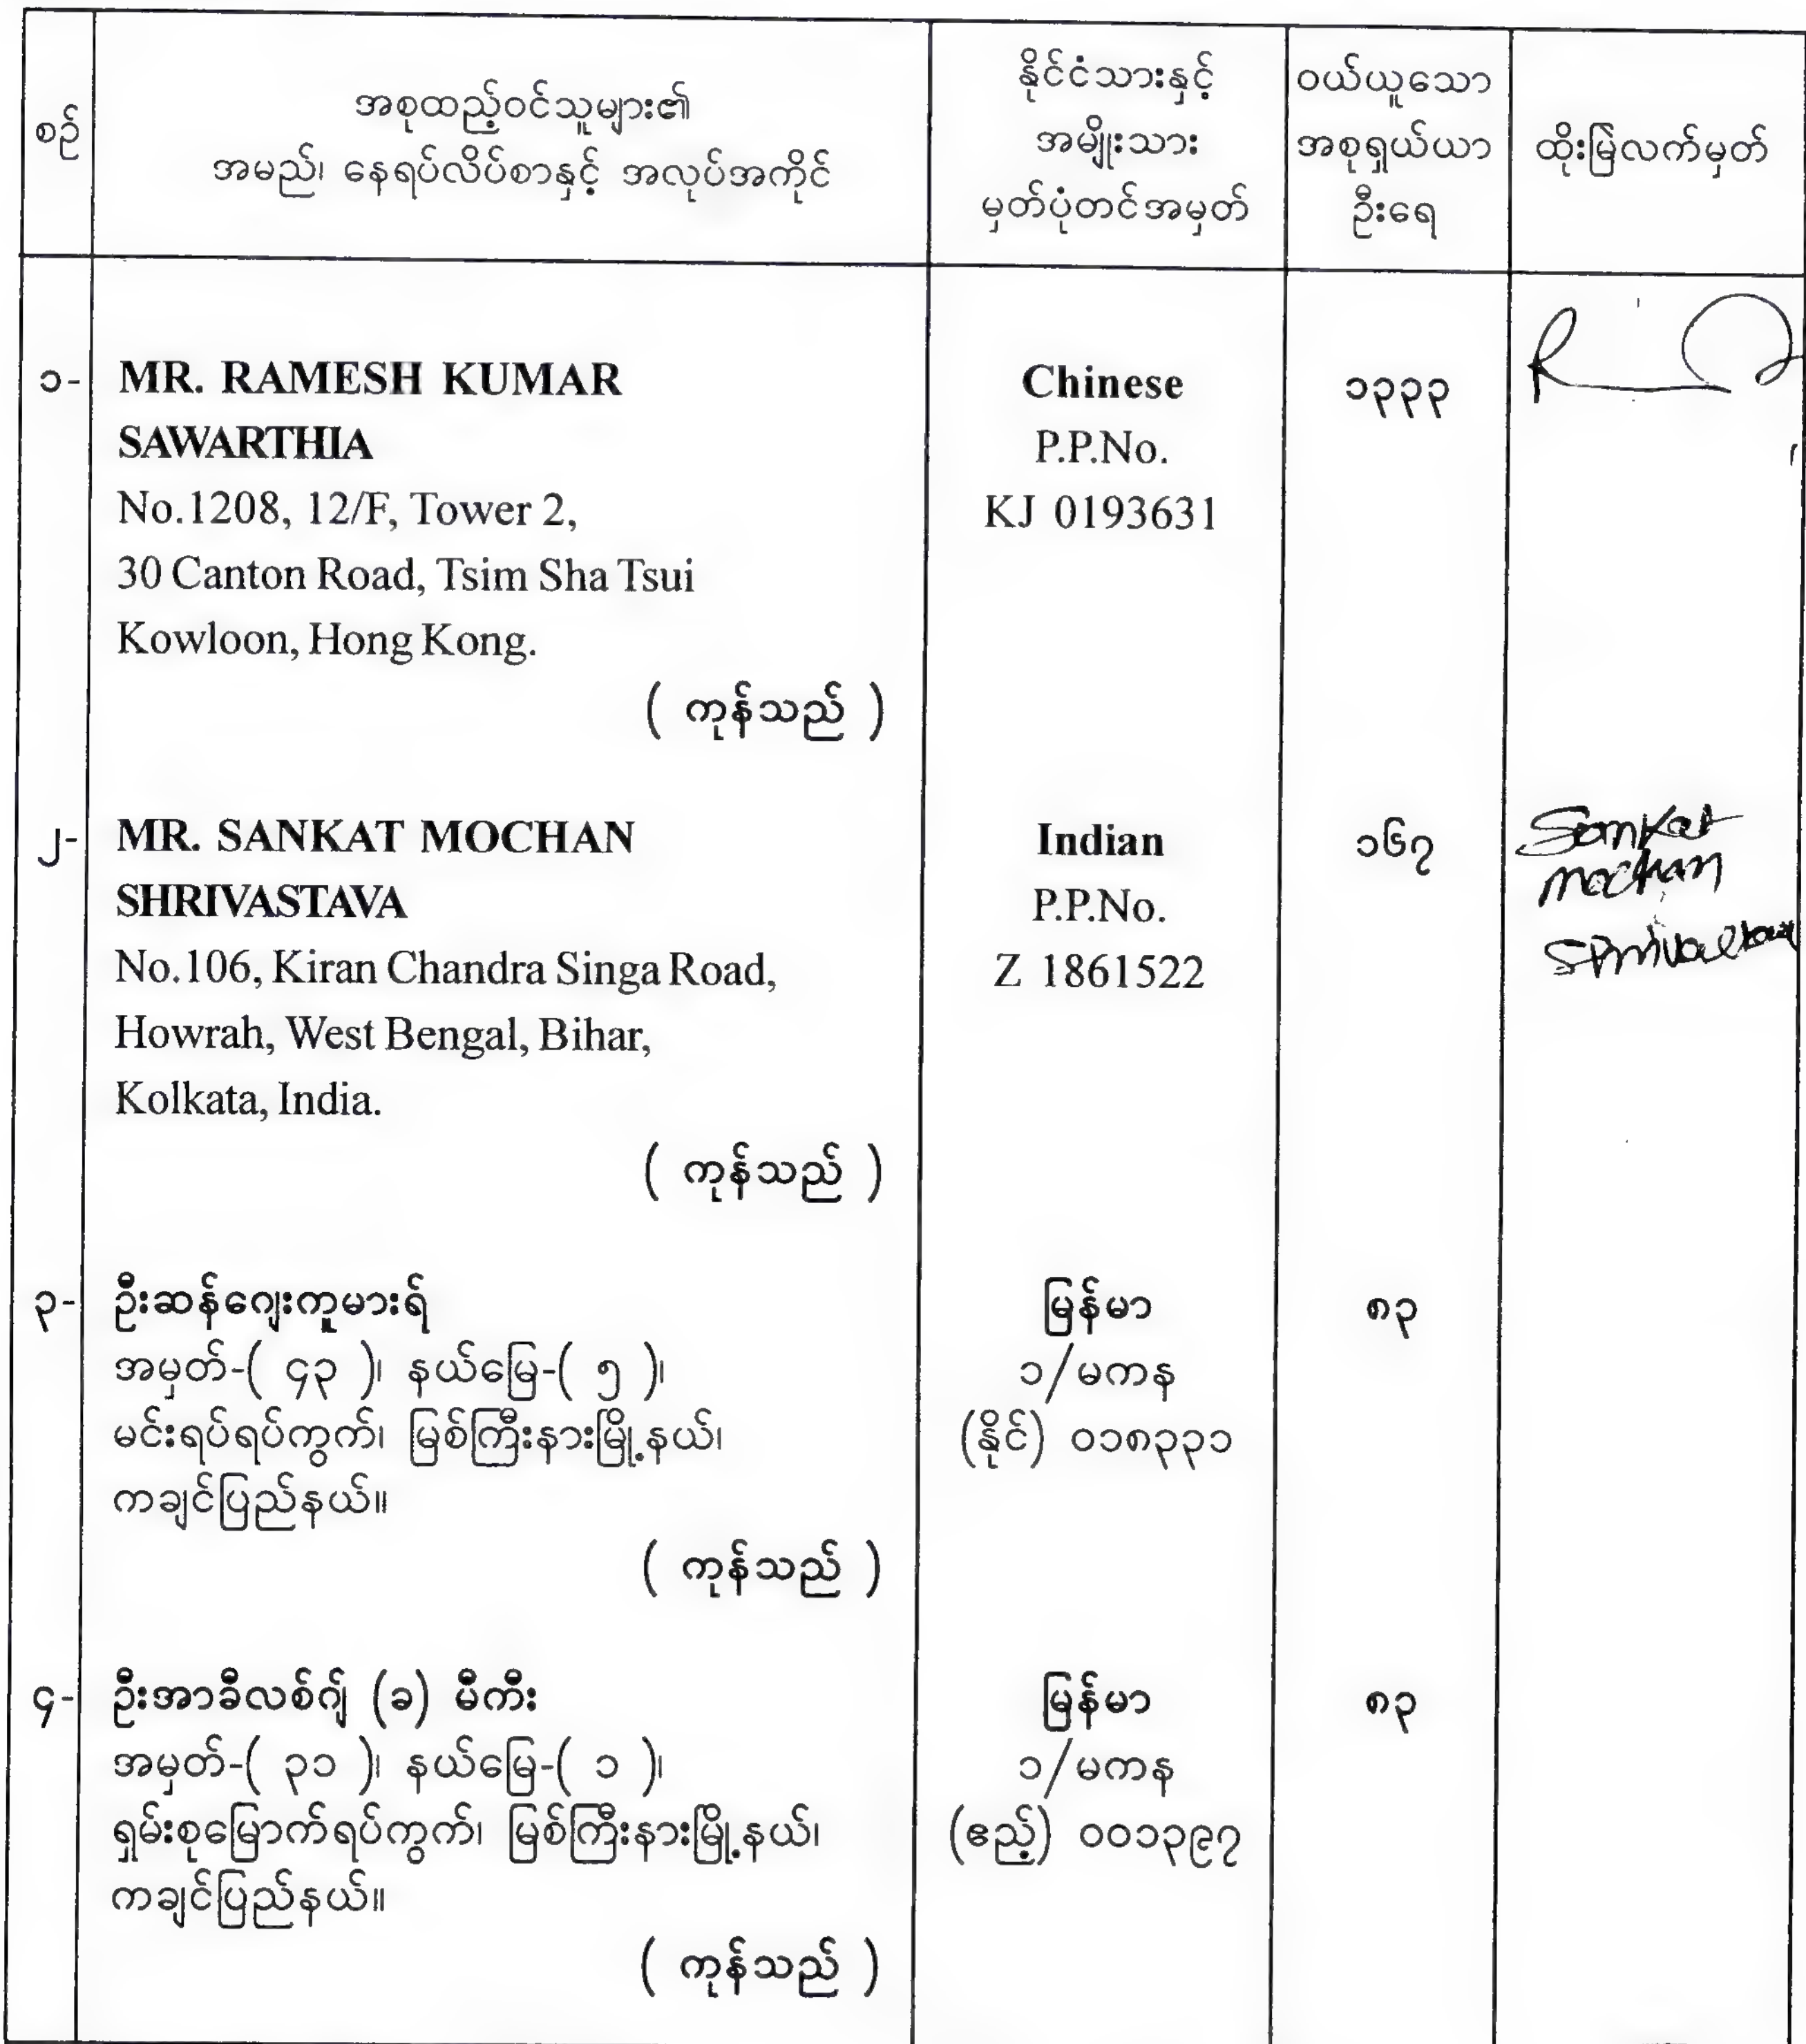 စဉ်
အစုထည့်ဝင်သူများ၏
အမည်၊ နေရပ်လိပ်စာနှင့် အလုပ်အကိုင်
နိုင်ငံသားနှင့်
အမျိုးသား
မှတ်ပုံတင်အမှတ်
ဝယ်ယူသော
အစုရှယ်ယာ
ဦးရေ
ထိုးမြဲလက်မှတ်
၁-
MR. RAMESH KUMAR
SAWARTHIA
No.1208, 12/F, Tower 2,
30 Canton Road, Tsim Sha Tsui
Kowloon, Hong Kong.
( ကုန်သည် )
Chinese
P.P.No.
KJ 0193631
၁၃၃၃
၂-
MR. SANKAT MOCHAN
SHRIVASTAVA
No.106, Kiran Chandra Singa Road,
Howrah, West Bengal, Bihar,
Kolkata, India.
( ကုန်သည် )
Indian
P.P.No.
Z 1861522
၁၆၇
Sankat
mochan
၃-
ဦးဆန်ဂျေးကူမားရ်
အမှတ်-( ၄၃ )၊ နယ်မြေ-( ၅ )၊
မင်းရပ်ရပ်ကွက်၊ မြစ်ကြီးနားမြို့နယ်၊
ကချင်ပြည်နယ်။
( ကုန်သည် )
မြန်မာ
၁/မကန
(နိုင်) ၀၁၈၃၃၁
၈၃
၄-
ဦးအာခီလစ်ဂျ် (ခ) မီကီး
အမှတ်-( ၃၁ )၊ နယ်မြေ-( ၁ )၊
ရှမ်းစုမြောက်ရပ်ကွက်၊ မြစ်ကြီးနားမြို့နယ်၊
ကချင်ပြည်နယ်။
( ကုန်သည် )
မြန်မာ
၁/မကန
(ဧည့်) ၀၀၁၃၉၇
၈၃